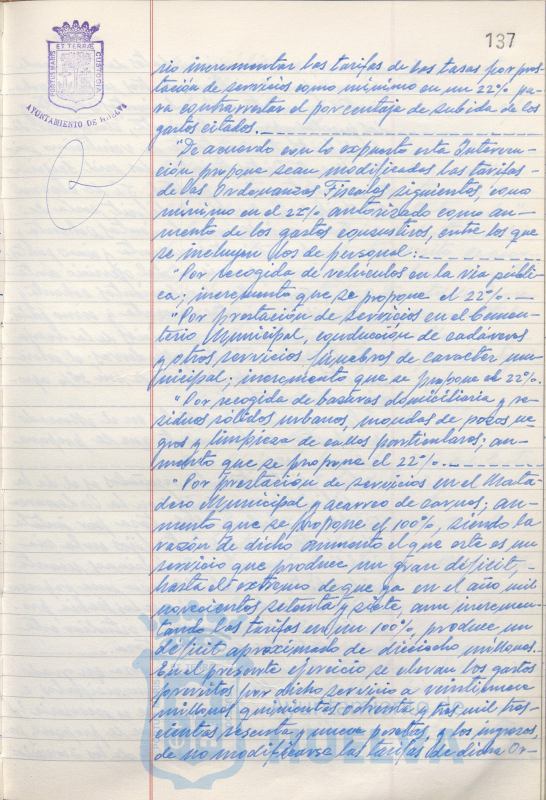 137
PORTUS MARIS ET TERRAE CUSTODIA
AYUNTAMIENTO DE HUELVA
rio incrementar las tarifas de las tasas por pres-
tación de servicios como mínimo en un 22% pa-
ra contrarrestar el porcentaje de subida de los
gastos citados.
"De acuerdo con lo expuesto esta Interven-
ción propone sean modificadas las tarifas
de las Ordenanzas Fiscales siguientes, como
mínimo en el 22%, autorizado como au-
mento de los gastos consuntivos, entre los que
se incluyen los de personal:
"Por recogida de vehículos en la vía públi-
ca; incremento que se propone el 22%.
"Por prestación de servicios en el Cemen-
terio Municipal, conducción de cadáveres
y otros servicios fúnebres de caracter mu-
nicipal; incremento que se propone el 22%.
"Por recogida de basuras domiciliaria y re-
siduos sólidos urbanos, mondas de pozos ne-
gros y limpieza de calles particulares; au-
mento que se propone el 22%.
"Por prestación de servicios en el Mata-
dero Municipal y acarreo de carnes; au-
mento que se propone el 100%, siendo la
razón de dicho aumento el que este es un
servicio que produce un gran déficit,
hasta el extremo de que ya en el año mil
novecientos setenta y siete, aun incremen-
tando las tarifas en un 100%, produce un
déficit aproximado de dieciocho millones.
En el presente ejercicio se elevan los gastos
previstos por dicho servicio a veintinueve
millones quinientas ochenta y tres mil tres-
cientas sesenta y nueve pesetas, y los ingresos,
de no modificarse las tarifas de dicha Or-